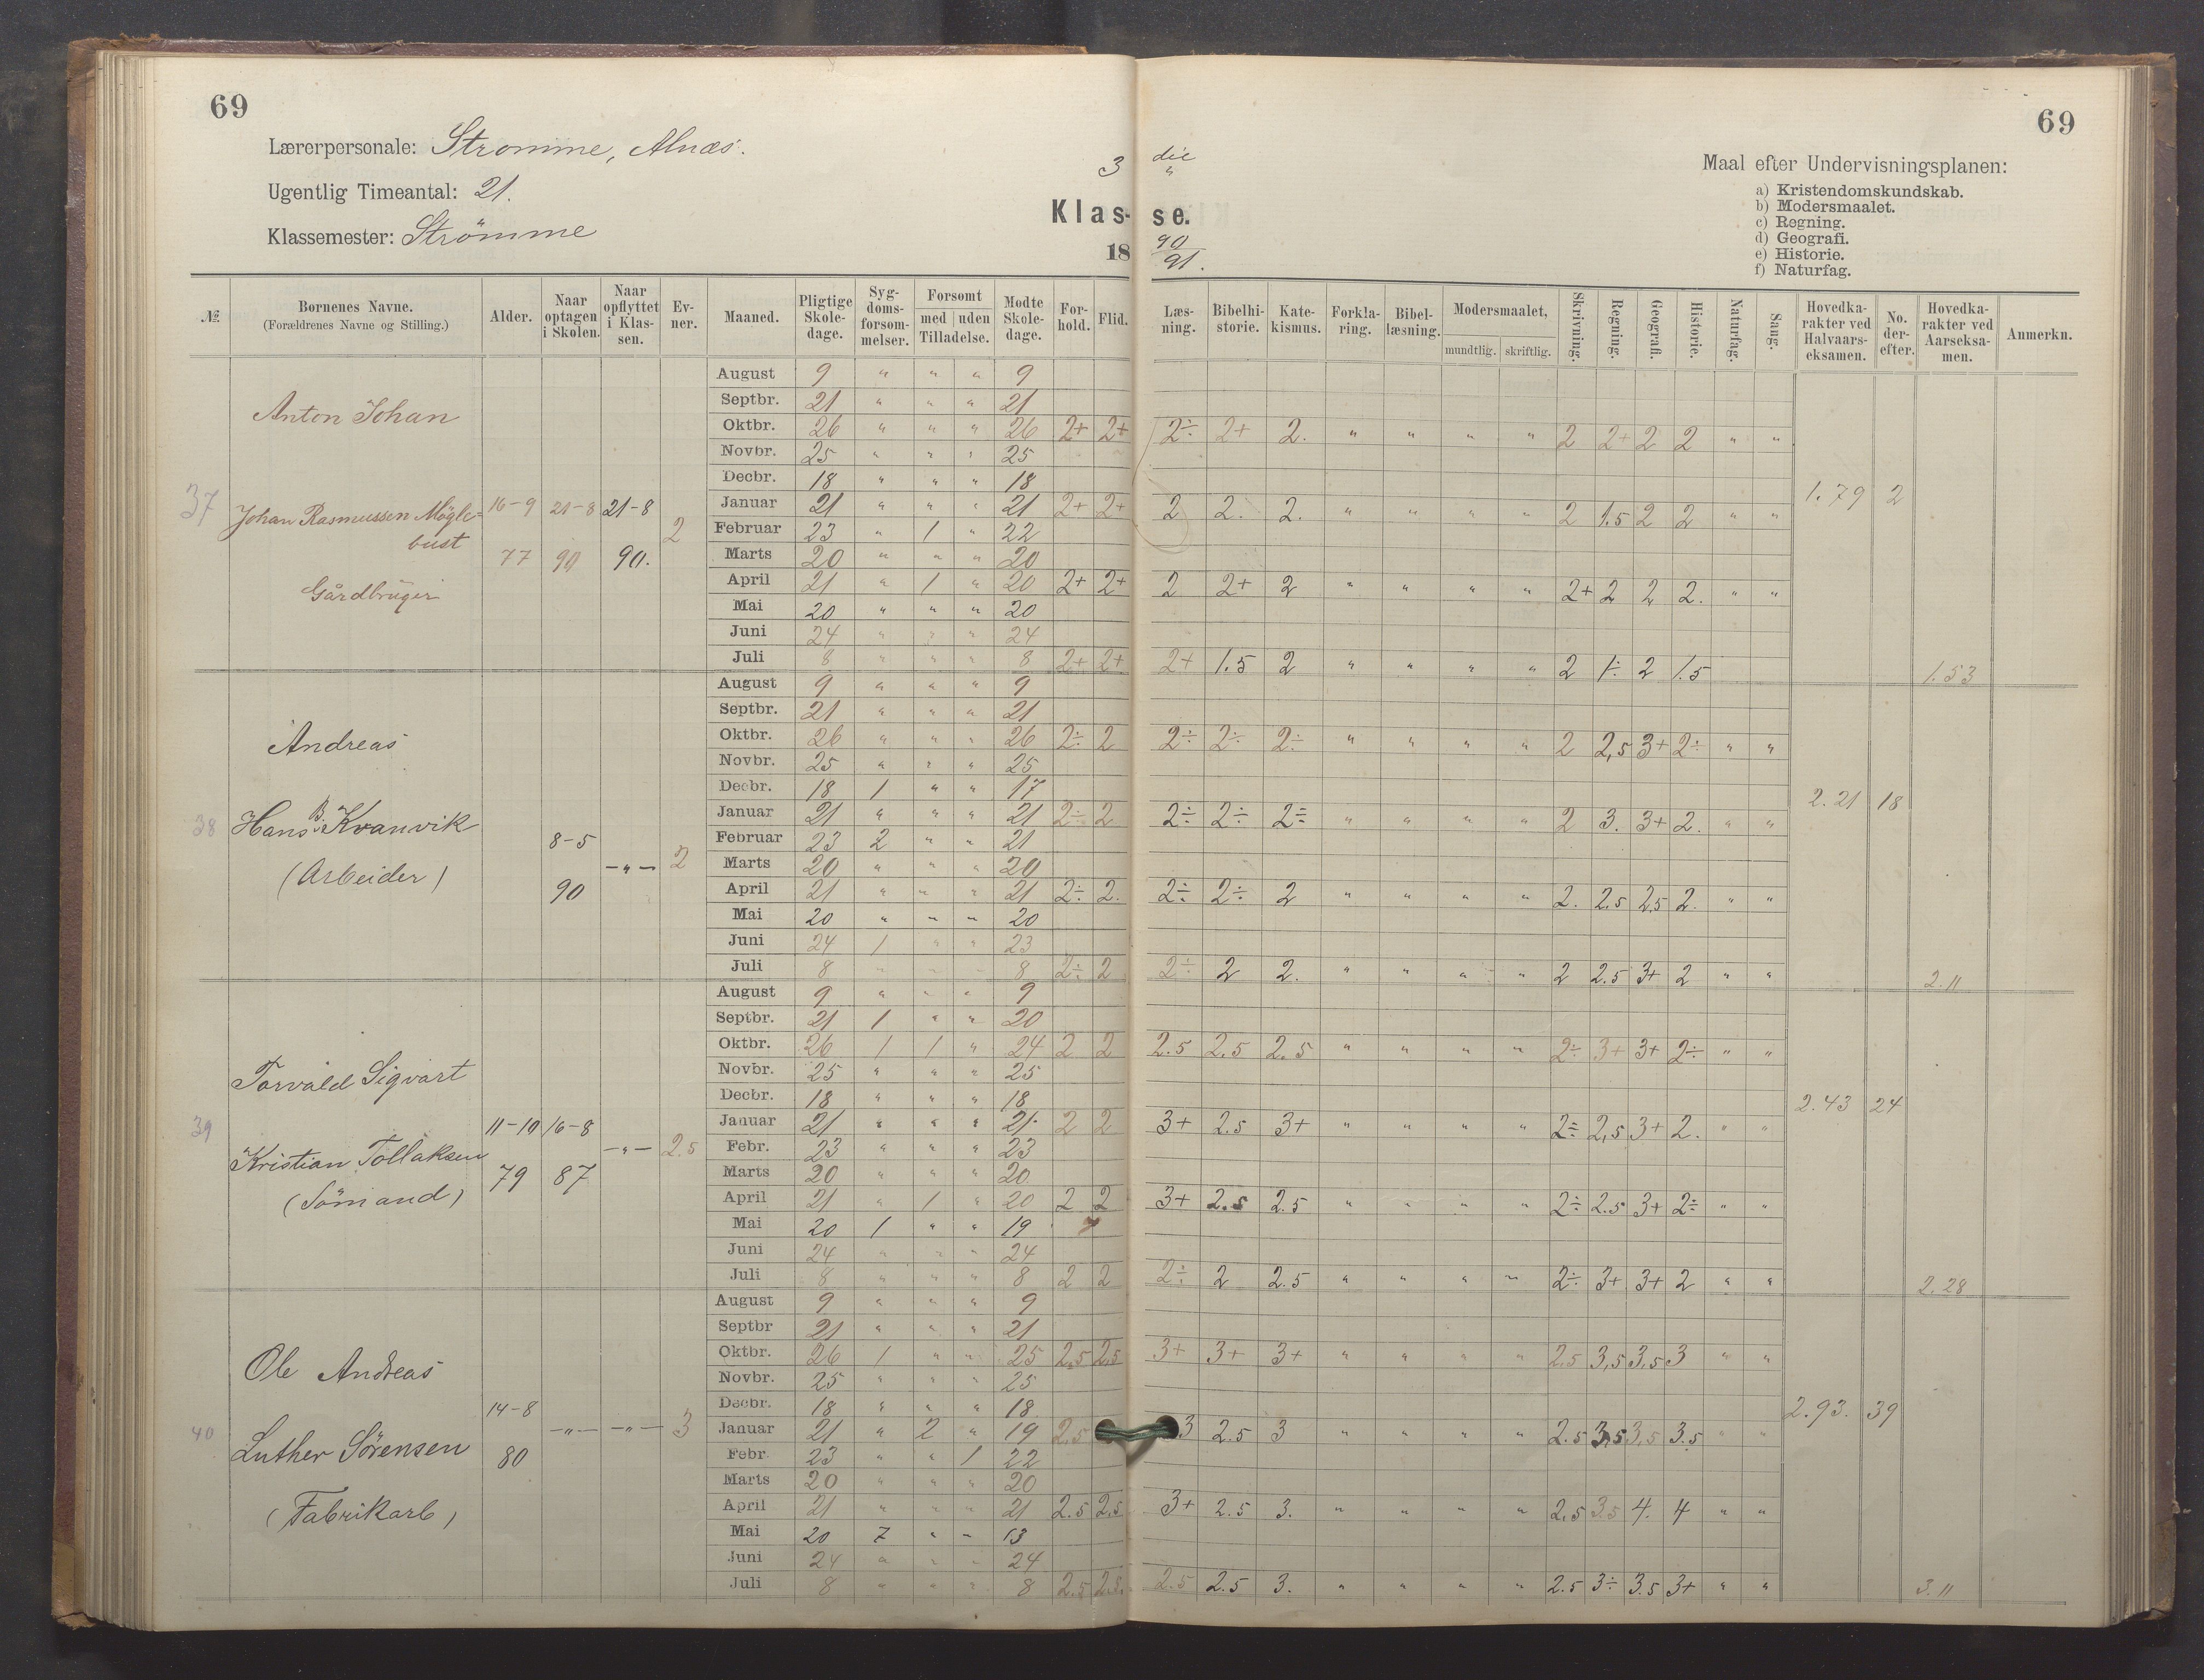 69
Lærerpersonale: Stromme, Alnæs.
Ugentlig Timeantal: 21.
Klassemester: Strömme
3 die
Klas- se.
18 90/91.
69
Maal efter Undervisningsplanen:
a) Kristendomskundskab.
b) Modersmaalet.
c) Regning.
d) Geografi.
e) Historie.
f) Naturfag.
№ | Børnenes Navne. (Forældrenes Navne og Stilling.) | Alder. | Naar optagen i Skolen. | Naar opflyttet i Klassen. | Evner. | Maaned. | Pligtige Skoledage. | Sygdomsforsommelser. | Forsømt med Tilladelse. | uden | Mødte Skoledage. | Forhold. | Flid. | Læsning. | Bibelhistorie. | Katekismus. | Forklaring. | Bibellæsning. | Modersmaalet, mundtlig. | skriftlig. | Skrivning. | Regning. | Geografi. | Historie. | Naturfag. | Sang. | Hovedkarakter ved Halvaarseksamen. | No. derefter. | Hovedkarakter ved Aarseksamen. | Anmerkn.
37 Anton Johan
Johan Rasmussen Mögle-
bust
Gårdbruger
16-9 77 | 21-8 90 | 21-8 90. | 2
August 9 " " " 9
Septbr. 21 " " " 21
Oktbr. 26 " " " 26 2+ 2+ 2÷ 2+ 2. " " " " 2 2+ 2 2 " "
Novbr. 25 " " " 25
Decbr. 18 " " " 18
Januar 21 " " " 21 2+ 2+ 2 2. 2. " " " " 2 1.5 2 2 " "
1.79 2
Februar 23 " 1 " 22
Marts 20 " " " 20
April 21 " 1 " 20 2+ 2+ 2 2+ 2 " " " " 2+ 2 2 2. " "
Mai 20 " " " 20
Juni 24 " " " 24
Juli 8 " " " 8 2+ 2+ 2+ 1.5 2 " " " " 2 1÷ 2 1.5
1.53
38 Andreas
Hans B. Kvanvik
(Arbeider)
8-5 90 | -"- | 2
August 9 " " " 9
Septbr. 21 " " " 21
Oktbr. 26 " " " 26 2÷ 2 2÷ 2÷ 2÷ " " " " 2 2,5 3+ 2÷ " "
Novbr. 25 " " " 25
Decbr. 18 1 " " 17
Januar 21 " " " 21 2÷ 2 2÷ 2÷ 2÷ " " " " 2 3. 3+ 2. " "
2.21 18
Februar 23 2 " " 21
Marts 20 " " " 20
April 21 " " " 21 2÷ 2. 2÷ 2÷ 2 " " " " 2. 2.5 2,5 2. " "
Mai 20 " " " 20
Juni 24 1 " " 23
Juli 8 " " " 8 2÷ 2 2÷ 2 2. " " " " 2 2.5 3+ 2 " "
2.11
39 Torvald Sigvart
Kristian Tollaksen
(Sömand)
11-10 79 | 16-8 87 | -"- | 2.5
August 9 " " " 9
Septbr. 21 1 " " 20
Oktbr. 26 1 1 " 24 2 2 2.5 2.5 2.5 " " " " 2÷ 3+ 3+ 2÷ " "
Novbr. 25 " " " 25
Decbr. 18 " " " 18
Januar 21 " " " 21. 2 2 3+ 2.5 3+ " " " " 2÷ 2,5 3+ 2. " "
2.43 24
Febr. 23 " " " 23
Marts 20 " " " 20
April 21 " 1 " 20 2 2 3+ 2.5 2.5 " " " " 2÷ 2.5 3+ 2÷ " "
Mai 20 1 " " 19
Juni 24 " " " 24
Juli 8 " " " 8 2 2 2÷ 2 2.5 " " " " 2÷ 3+ 3+ 2 " "
2.28
40 Ole Andreas
Luther Sörensen
(Fabrikarb)
14-8 80 | -"- | -"- | 3
August 9 " " " 9
Septbr 21 " " " 21
Oktbr. 26 1 " " 25 2,5 2,5 3+ 3+ 3+ " " " " 2.5 3,5 3,5 3 " "
Novbr. 25 " " " 25
Decbr. 18 " " " 18
Januar 21 " 2 " 19 2.5 3 2.5 3 " " " " 2.5 3,5 3,5 3.5 " "
2.93. 39
Febr. 23 " " 1 22
Marts 20 " " " 20
April 21 " " " 21 2.5 2.5 3+ 2.5 3. " " " " 2.5 3.5 4. 4 " "
Mai 20 7 " " 13
Juni 24 " " " 24
Juli 8 " " " 8 2.5 2.5 2.5 2.5 3. " " " " 2.5 3÷ 3.5 3+ " "
3.11